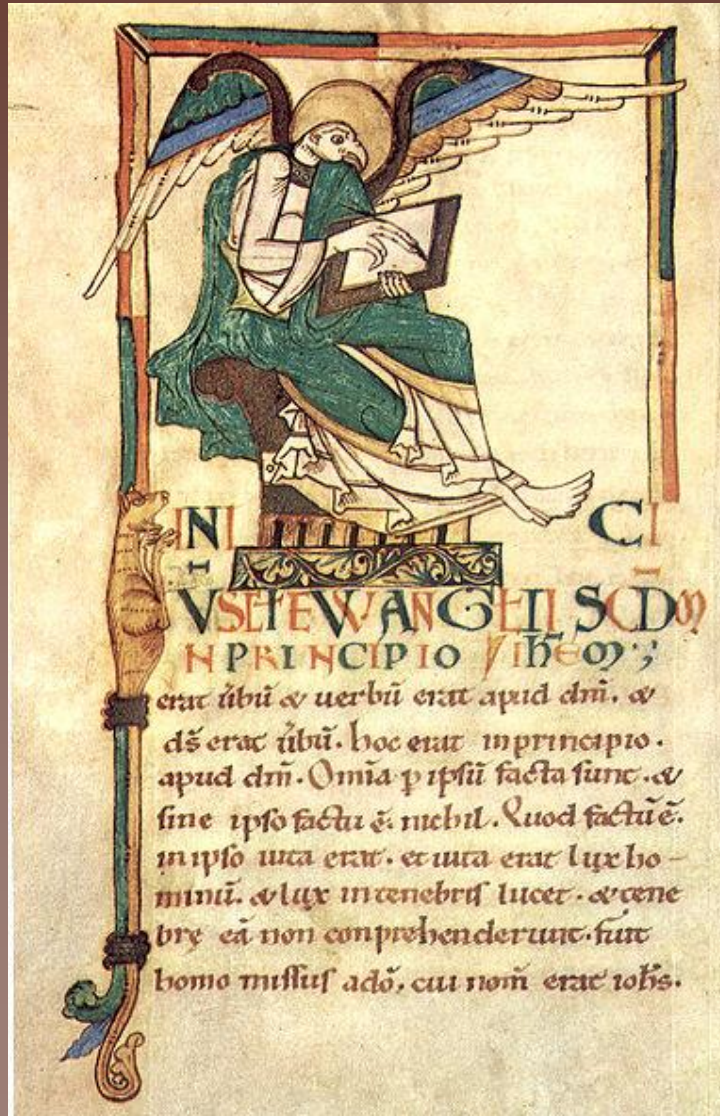 INI CI
EWANGELII SCDM
N PRINCIPIO
erat ũbũ & uerbũ erat apud dm̃. &
ds̃ erat ũbũ. hoc erat inprincipio.
apud dm̃. Om̃ia p ipsũ facta sunt. &
sine ipso factũ ẽ. nichil. Quod factũ ẽ.
inipso uita erat. et uita erat lux ho-
minũ. & lux intenebris lucet. & tene
brę eã non conprehenderunt. fuit
homo missus adõ, cui nom̃ erat iohs̃.